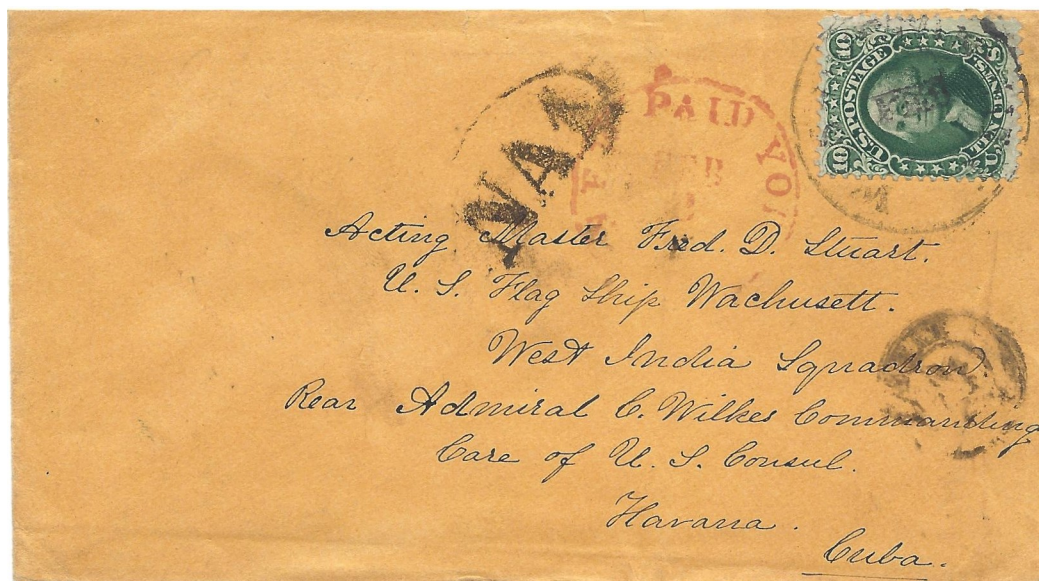 10 U.S. POSTAGE TEN CENTS. 10
PAID
NA1
Acting Master Fred. D. Stuart.
U. S. Flag Ship Wachusett.
West India Squadron
Rear Admiral C. Wilkes Commanding
Care of U. S. Consul.
Havana.
Cuba.